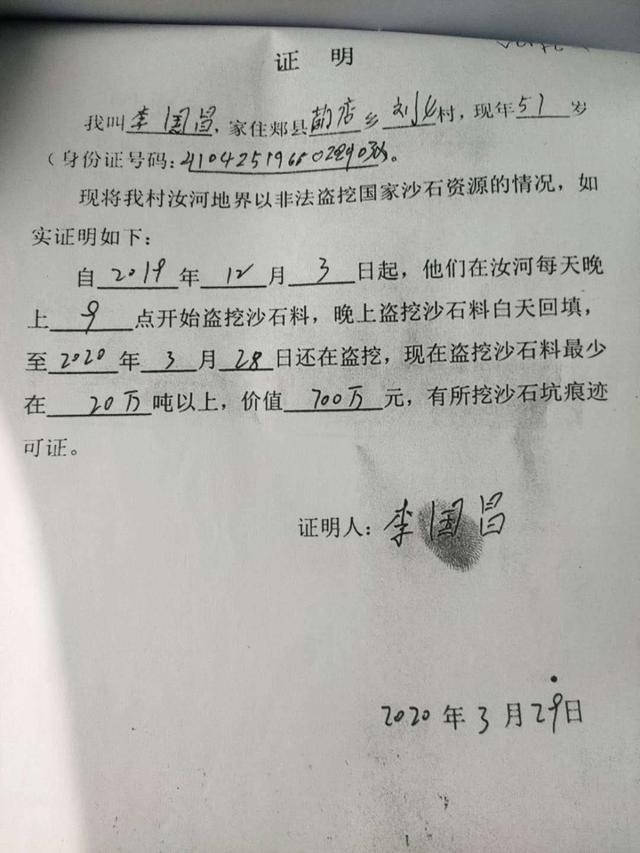 证 明
我叫李国昌,家住郏县 乡 村,现年57岁
(身份证号码: 。
现将我村汝河地界以非法盗挖国家沙石资源的情况,如
实证明如下:
自2019年12月3日起,他们在汝河每天晚
上9点开始盗挖沙石料,晚上盗挖沙石料白天回填,
至2020年3月28日还在盗挖,现在盗挖沙石料最少
在20万吨以上,价值700万元,有所挖沙石坑痕迹
可证。
证明人:李国昌
2020年3月29日